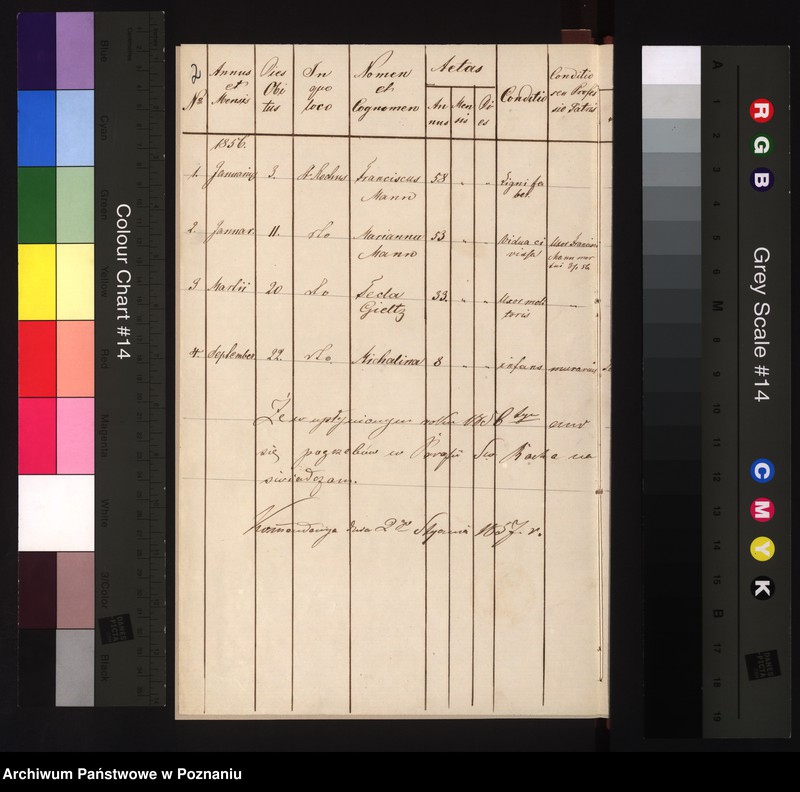 2
Annus et Mensis
Nr.
Dies Obitus
In quo loco
Nomen et Cognomen
Aetas
Annus
Mensis
Dies
Conditio
Conditio seu Professio Patris
1856.
1. Januarius 3. St. Rochus Franciscus Mann 58 " " Lignifaber.
2 Januar. 11. dto Marianna Mann 53 " " Vidua
3 Martii 20 dto Tecla 33. " " Uxor molitoris
4 September 22. dto. Michalina 8 " " infans murarii
Że w upłynionym roku 1856
się pogrzebów w Parafii Św. Rocha
świadczam.
Komenderya dnia 2go Stycznia 1857. r.
Colour Chart #14
Blue
Cyan
Green
Yellow
Red
Magenta
White
3/Color
Black
Grey Scale #14
R
G
B
C
M
Y
K
A
1
2
3
4
5
6
M
8
9
10
11
12
13
14
15
B
17
18
19
Archiwum Państwowe w Poznaniu